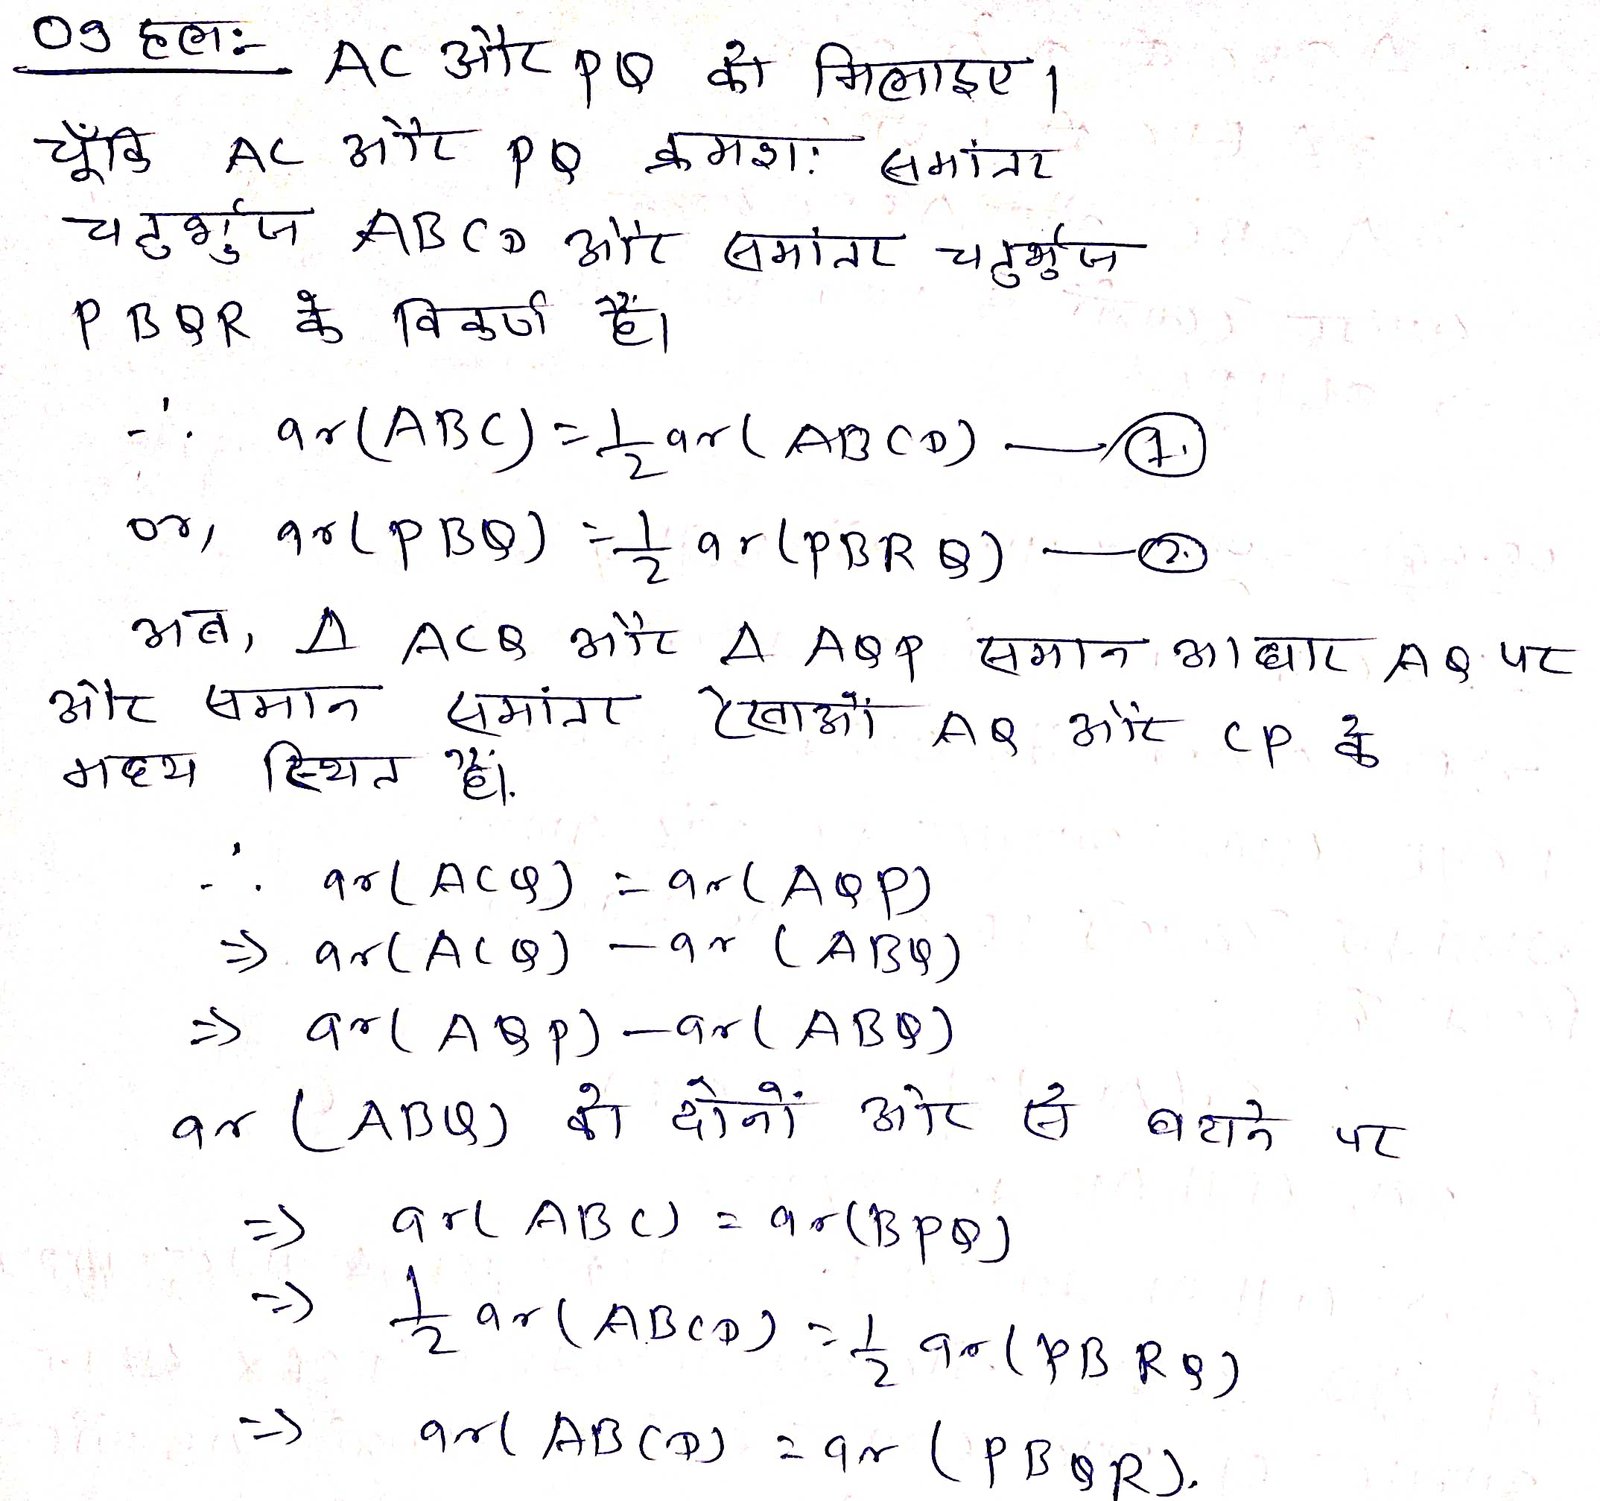 09 हल:-
AC और PQ को मिलाइए।
चूँकि AC और PQ क्रमश: समांतर
चतुर्भुज ABCD और समांतर चतुर्भुज
PBQR के विकर्ण हैं।
∴ ar(ABC) = 1/2 ar(ABCD) — 1.
or, ar(PBQ) = 1/2 ar(PBRQ) — 2.
अब, Δ ACQ और Δ AQP समान आधार AQ पर
और समान समांतर रेखाओं AQ और CP के
मध्य स्थित हैं।
∴ ar(ACQ) = ar(AQP)
⇒ ar(ACQ) – ar (ABQ)
⇒ ar(AQP) – ar(ABQ)
ar (ABQ) को दोनों ओर से घटाने पर
⇒ ar(ABC) = ar(BPQ)
⇒ 1/2 ar(ABCD) = 1/2 ar(PBRQ)
⇒ ar(ABCD) = ar (PBQR).